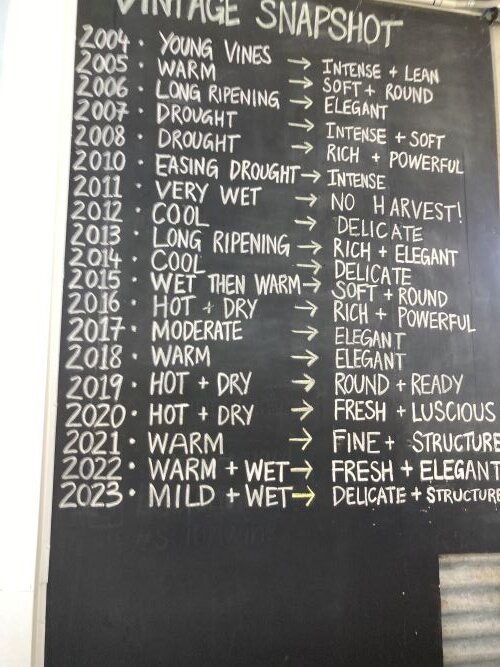 VINTAGE SNAPSHOT
2004 · YOUNG VINES → INTENSE + LEAN
2005 · WARM → SOFT + ROUND
2006 · LONG RIPENING → ELEGANT
2007 · DROUGHT → INTENSE + SOFT
2008 · DROUGHT → RICH + POWERFUL
2010 · EASING DROUGHT → INTENSE
2011 · VERY WET → NO HARVEST!
2012 · COOL → DELICATE
2013 · LONG RIPENING → RICH + ELEGANT
2014 · COOL → DELICATE
2015 · WET THEN WARM → SOFT + ROUND
2016 · HOT + DRY → RICH + POWERFUL
2017 · MODERATE → ELEGANT
2018 · WARM → ELEGANT
2019 · HOT + DRY → ROUND + READY
2020 · HOT + DRY → FRESH + LUSCIOUS
2021 · WARM → FINE + STRUCTURE
2022 · WARM + WET → FRESH + ELEGANT
2023 · MILD + WET → DELICATE + STRUCTURE